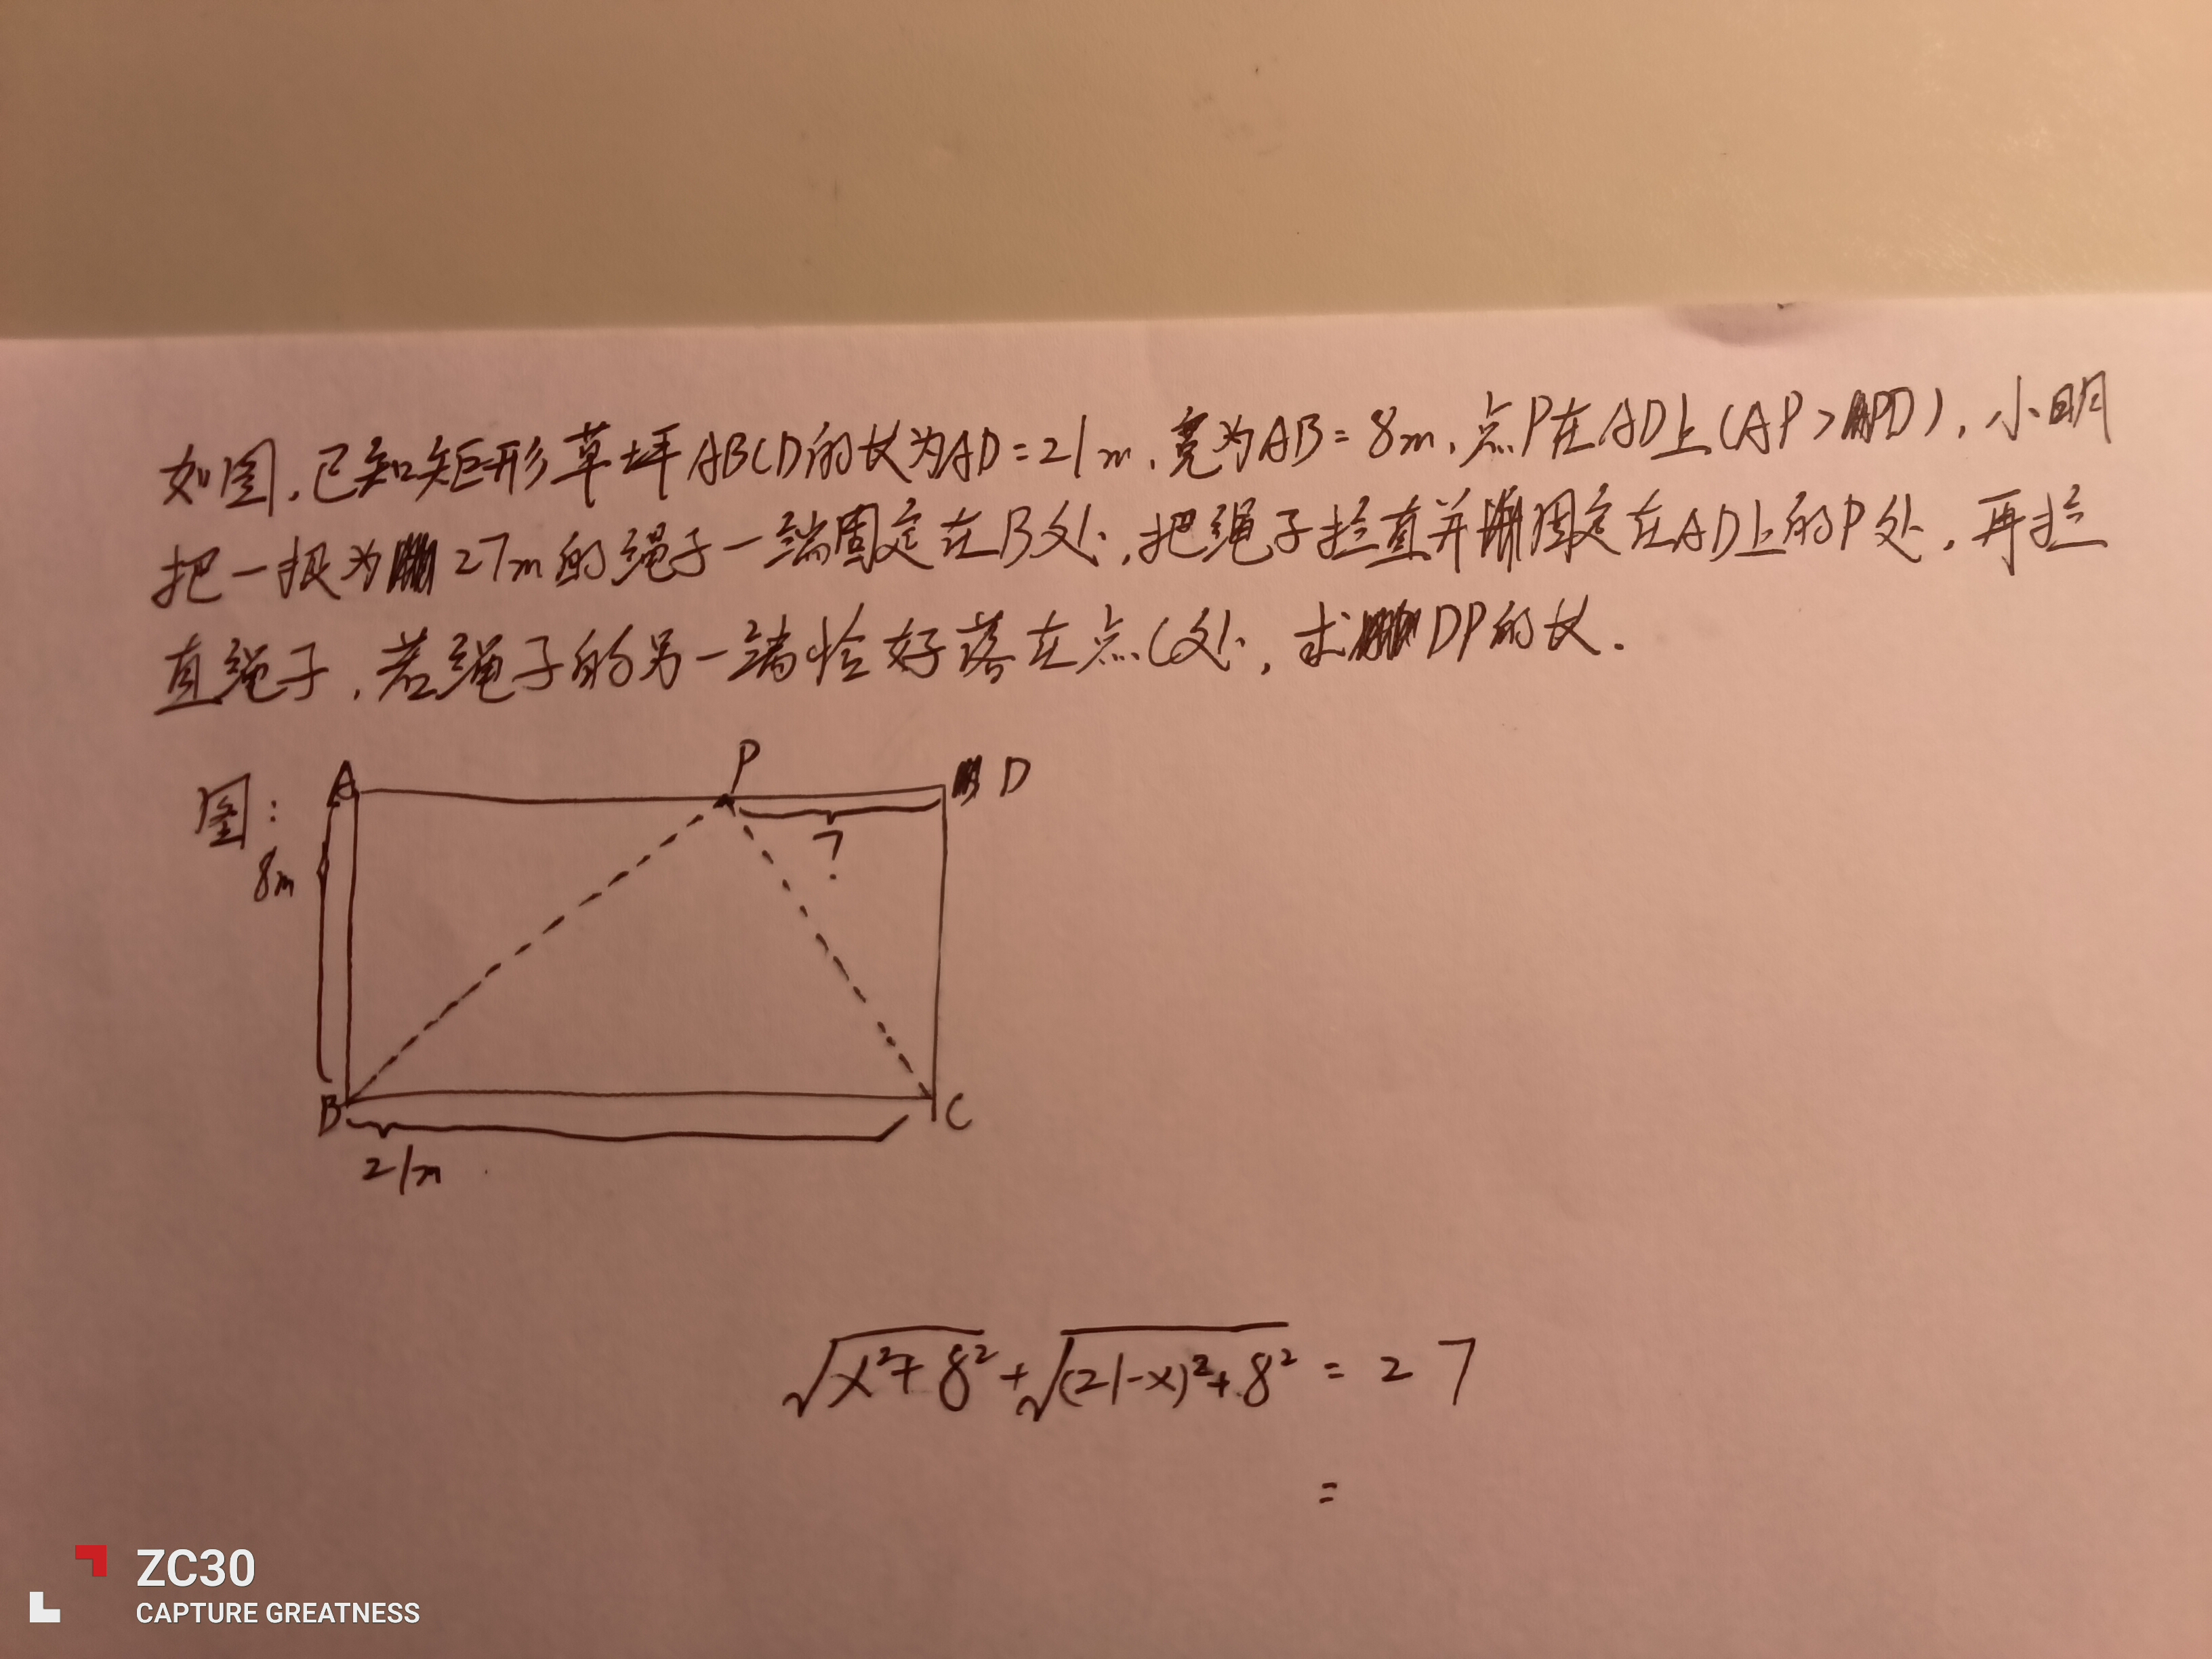 如图,已知矩形草坪ABCD的长为AD=21m,宽为AB=8m,点P在AD上(AP>PD),小明
把一根为27m的绳子一端固定在B处,把绳子拉直并固定在AD上的P处,再拉
直绳子,若绳子的另一端恰好落在点C处,求DP的长.
图:
A
P
D
8m
?
B
C
21m
√x²+8²+√(21-x)²+8² = 27
=
ZC30
CAPTURE GREATNESS